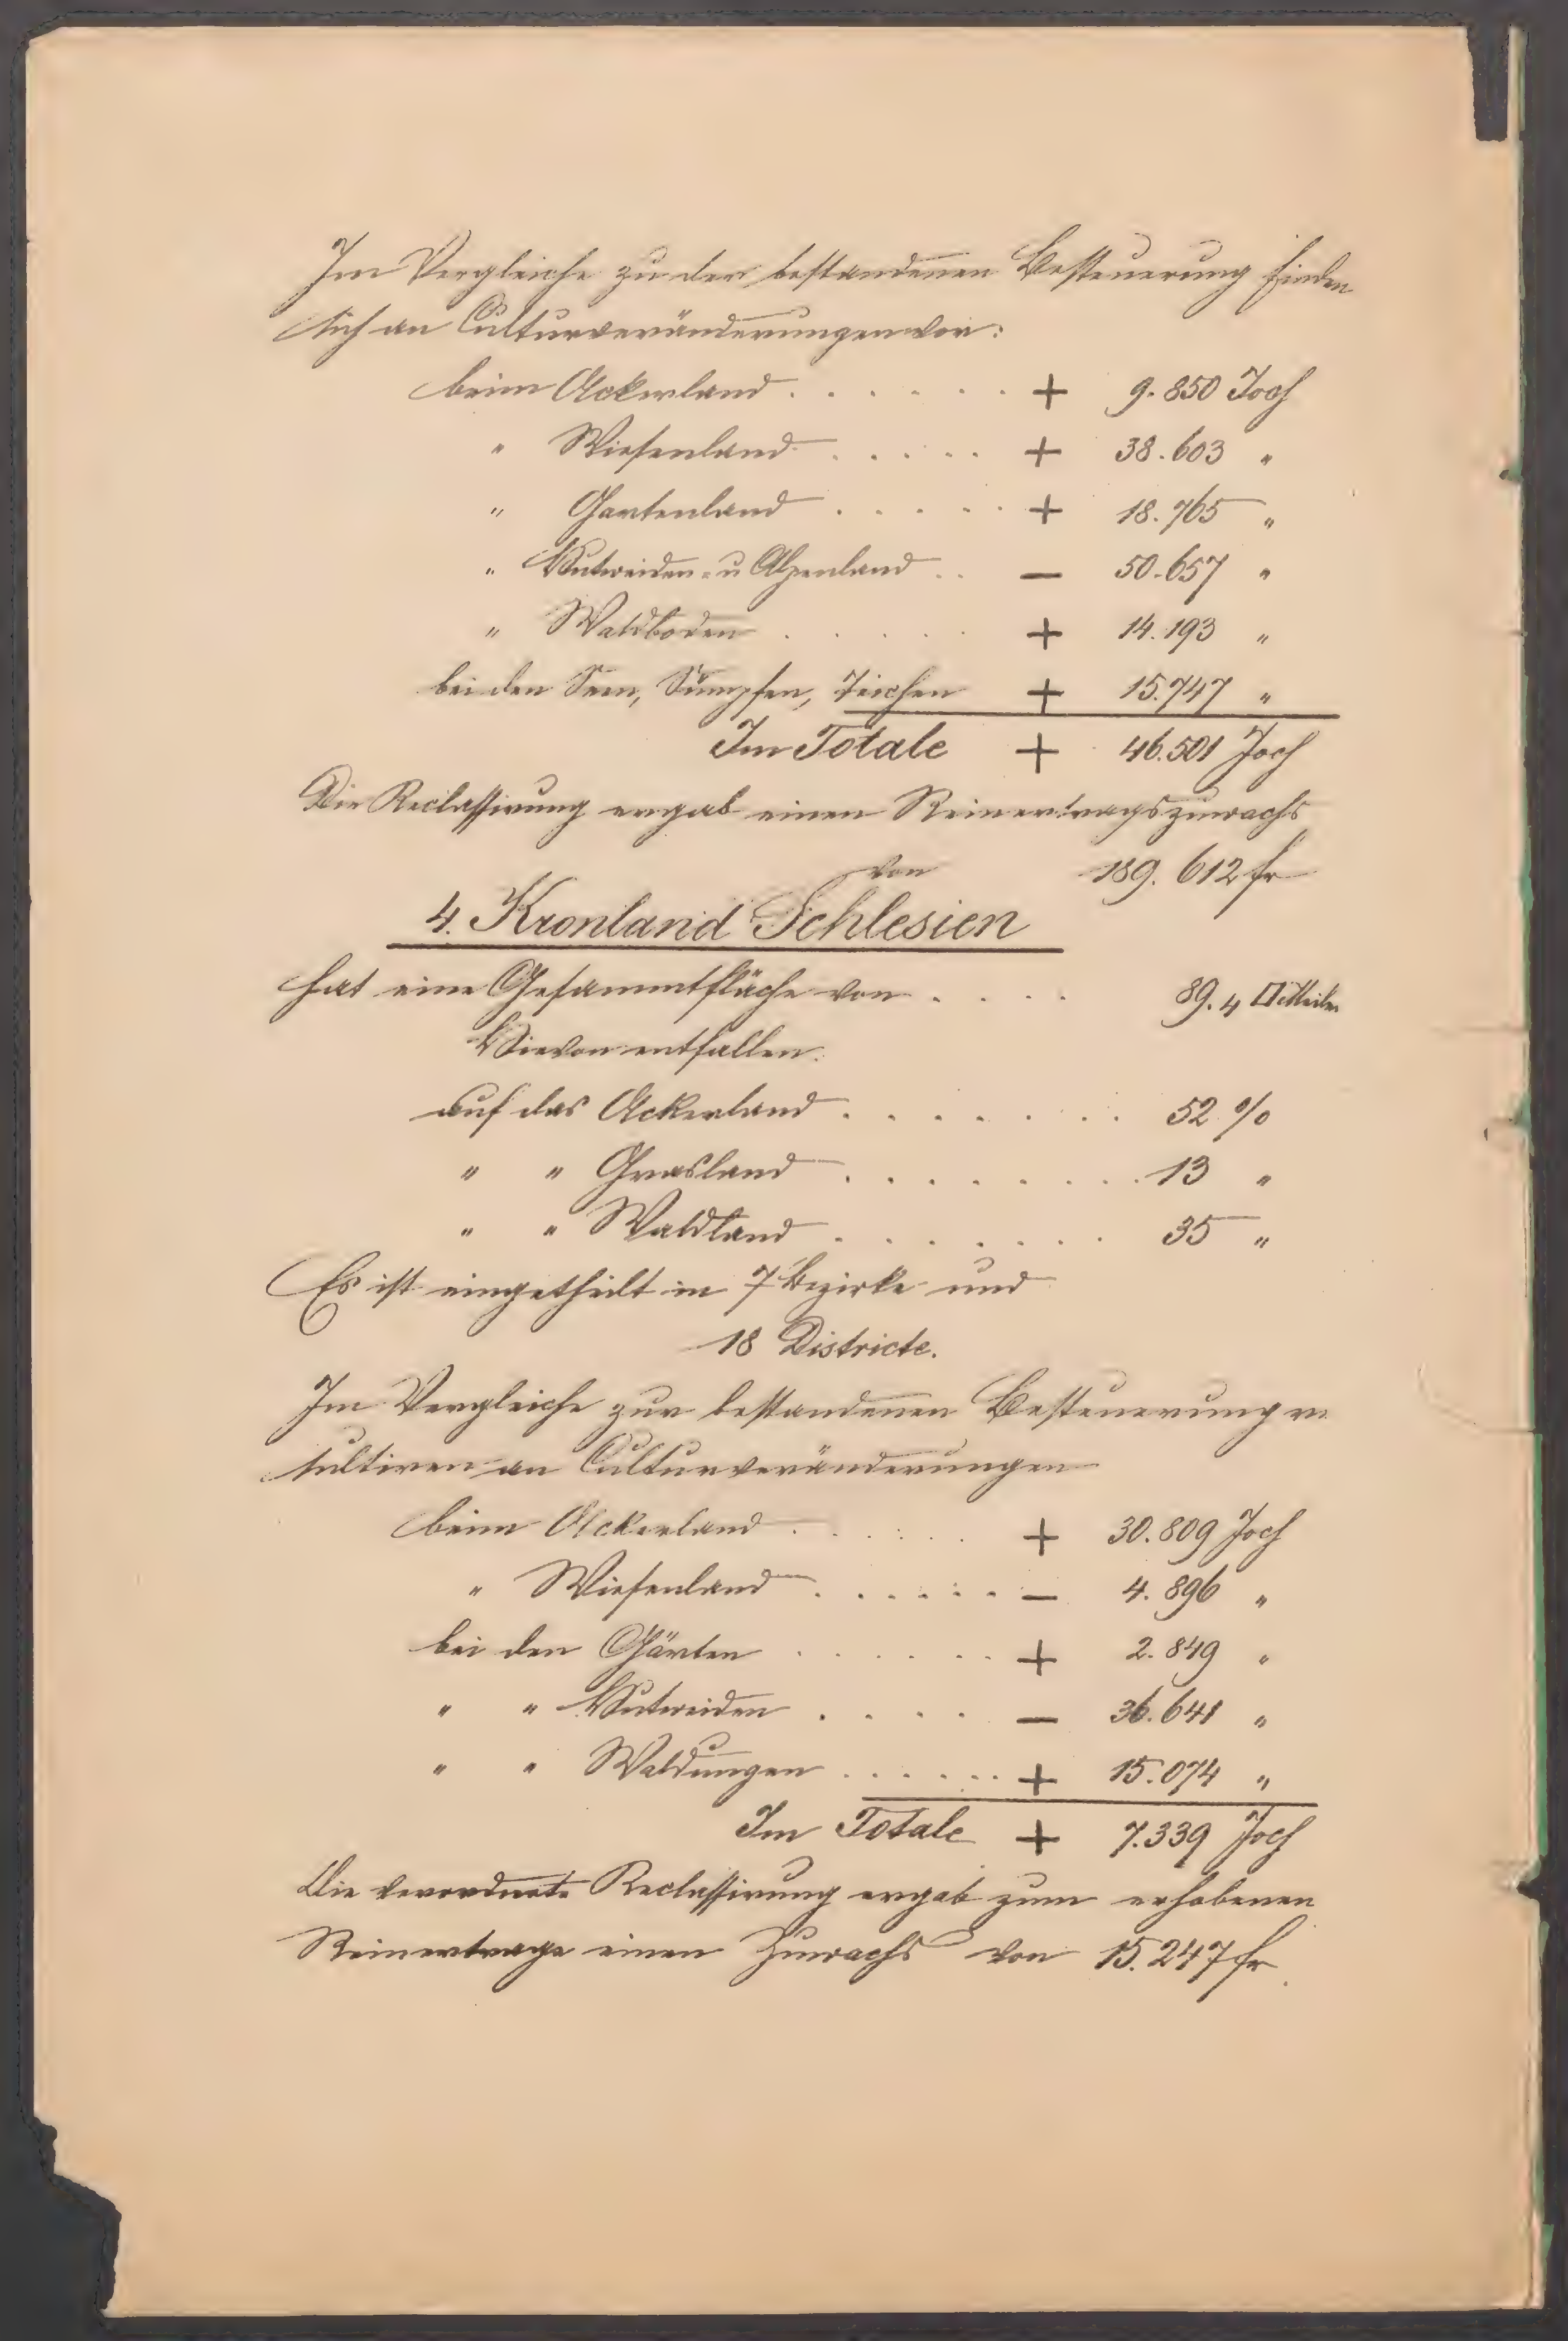 Im Vergleiche zu der bestandenen Besteuerung finden
sich an Culturveränderungen vor:
beim Ackerland . . . . . . + 9.850 Joch
" Wiesenland . . . . . + 38.603 "
" Gartenland . . . . . + 18.765 "
" Hutweiden- u Alpenland . . — 50.657 "
" Waldboden . . . . . + 14.193 "
bei den Seen, Sümpfen, Teichen + 15.747 "
Im Totale + 46.501 Joch
Die Reclassirung ergab einen Reinertragszuwachs
von 189.612 fr
4. Kronland Schlesien
hat eine Gesammtfläche von . . . . 89.4 □Meilen
Hievon entfallen:
auf das Ackerland . . . . . . . 52 %
" " Grasland . . . . . . . . 13 "
" " Waldland . . . . . . . 35 "
Es ist eingetheilt in 7 Bezirke und
18 Districte.
Im Vergleiche zur bestandenen Besteuerung re
sultiren an Culturveränderungen
beim Ackerland . . . . . + 30.809 Joch
" Wiesenland . . . . . . — 4.896 "
bei den Gärten . . . . . . + 2.849 "
" " Hutweiden . . . . — 36.641 "
" " Waldungen . . . . . . + 15.074 "
Im Totale + 7.339 Joch
Die verordnete Reclassirung ergab zum erhobenen
Reinertrage einen Zuwachs von 15.247 fr